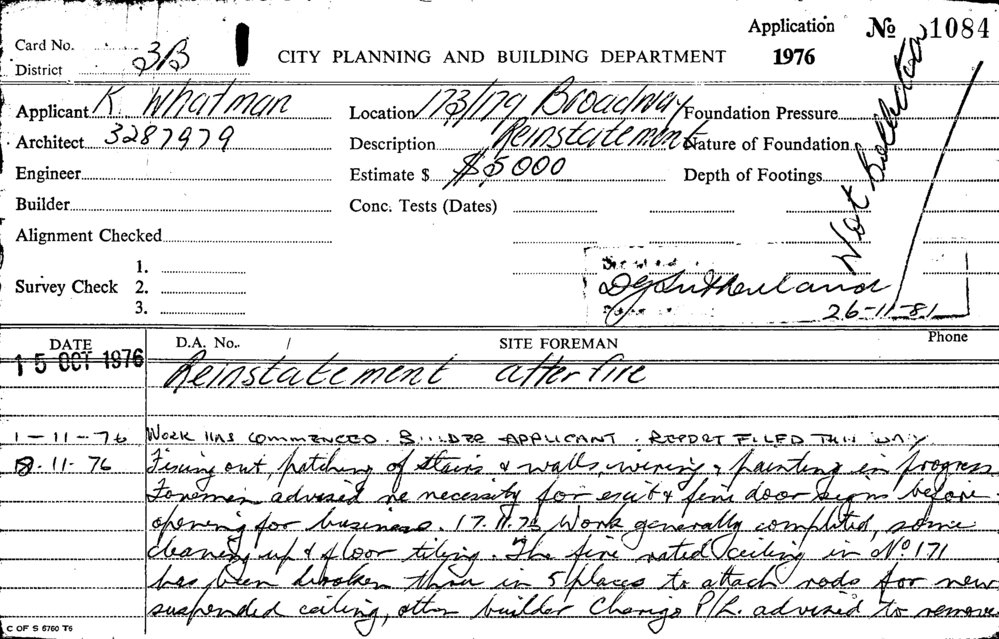 Application No 1084
Card No.
District 3B
CITY PLANNING AND BUILDING DEPARTMENT 1976
Applicant K Whatman Location 173/179 Broadway Foundation Pressure
Architect 3287979 Description Reinstatement Nature of Foundation
Engineer Estimate $ $5000 Depth of Footings
Builder Conc. Tests (Dates)
Alignment Checked
Survey Check 1.
2.
3.
Not
DGSutherland
26-11-81
DATE D.A. No. / SITE FOREMAN Phone
15 OCT 1976 Reinstatement after fire
1-11-76 WORK HAS COMMENCED. BUILDER APPLICANT. REPORT FILED THIS DAY
8.11.76 Fixing out, patching of stairs & walls, wiring & painting in progress
Foreman advised re necessity for exit & fire door signs before
opening for business. 17.11.76 Work generally completed, some
cleaning up & floor tiling. The fire rated ceiling in No 171
has been broken thru in 5 places to attach rods for new
suspended ceiling, other builder P/L. advised to remove
C OF S 6760 T6